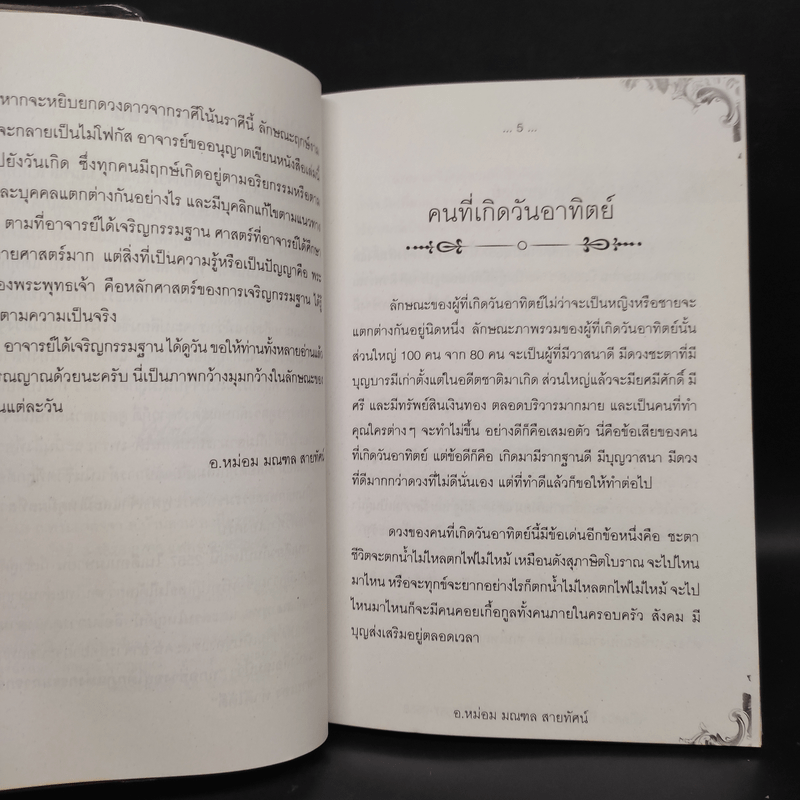 หากจะหยิบยกดวงดาวจากราศีโน้นราศีนี้ ลักษณะฤกษ์ยาม
จะกลายเป็นไม่โฟกัส อาจารย์ขออนุญาตเขียนหนังสือเล่มนี้
ปยังวันเกิด ซึ่งทุกคนมีฤกษ์เกิดอยู่ตามอริยกรรมหรือตาม
ละบุคคลแตกต่างกันอย่างไร และมีบุคลิกแก้ไขตามแนวทาง
ตามที่อาจารย์ได้เจริญกรรมฐาน ศาสตร์ที่อาจารย์ได้ศึกษา
ายศาสตร์มาก แต่สิ่งที่เป็นความรู้หรือเป็นปัญญาคือ พระ
องพระพุทธเจ้า คือหลักศาสตร์ของการเจริญกรรมฐาน ได้รู้
ตามความเป็นจริง
อาจารย์ได้เจริญกรรมฐาน ได้ดูวัน ขอให้ท่านทั้งหลายอ่านแล้ว
รณญาณด้วยนะครับ นี่เป็นภาพกว้างมุมกว้างในลักษณะของ
นแต่ละวัน
อ.หม่อม มณฑล สายทัศน์
... 5 ...
คนที่เกิดวันอาทิตย์
ลักษณะของผู้ที่เกิดวันอาทิตย์ไม่ว่าจะเป็นหญิงหรือชายจะ
แตกต่างกันอยู่นิดหนึ่ง ลักษณะภาพรวมของผู้ที่เกิดวันอาทิตย์นั้น
ส่วนใหญ่ 100 คน จาก 80 คน จะเป็นผู้ที่มีวาสนาดี มีดวงชะตาที่มี
บุญบารมีเก่าตั้งแต่ในอดีตชาติมาเกิด ส่วนใหญ่แล้วจะมียศมีศักดิ์ มี
ศรี และมีทรัพย์สินเงินทอง ตลอดบริวารมากมาย และเป็นคนที่ทำ
คุณใครต่างๆ จะทำไม่ขึ้น อย่างดีก็คือเสมอตัว นี่คือข้อเสียของคน
ที่เกิดวันอาทิตย์ แต่ข้อดีก็คือ เกิดมามีรากฐานดี มีบุญวาสนา มีดวง
ที่ดีมากกว่าดวงที่ไม่ดีนั่นเอง แต่ที่ทำดีแล้วก็ขอให้ทำต่อไป
ดวงของคนที่เกิดวันอาทิตย์นี้มีข้อเด่นอีกข้อหนึ่งคือ ชะตา
ชีวิตจะตกน้ำไม่ไหลตกไฟไม่ไหม้ เหมือนดังสุภาษิตโบราณ จะไปไหน
มาไหน หรือจะทุกข์จะยากอย่างไรก็ตกน้ำไม่ไหลตกไฟไม่ไหม้ จะไป
ไหนมาไหนก็จะมีคนคอยเกื้อกูลทั้งคนภายในครอบครัว สังคม มี
บุญส่งเสริมอยู่ตลอดเวลา
อ.หม่อม มณฑล สายทัศน์